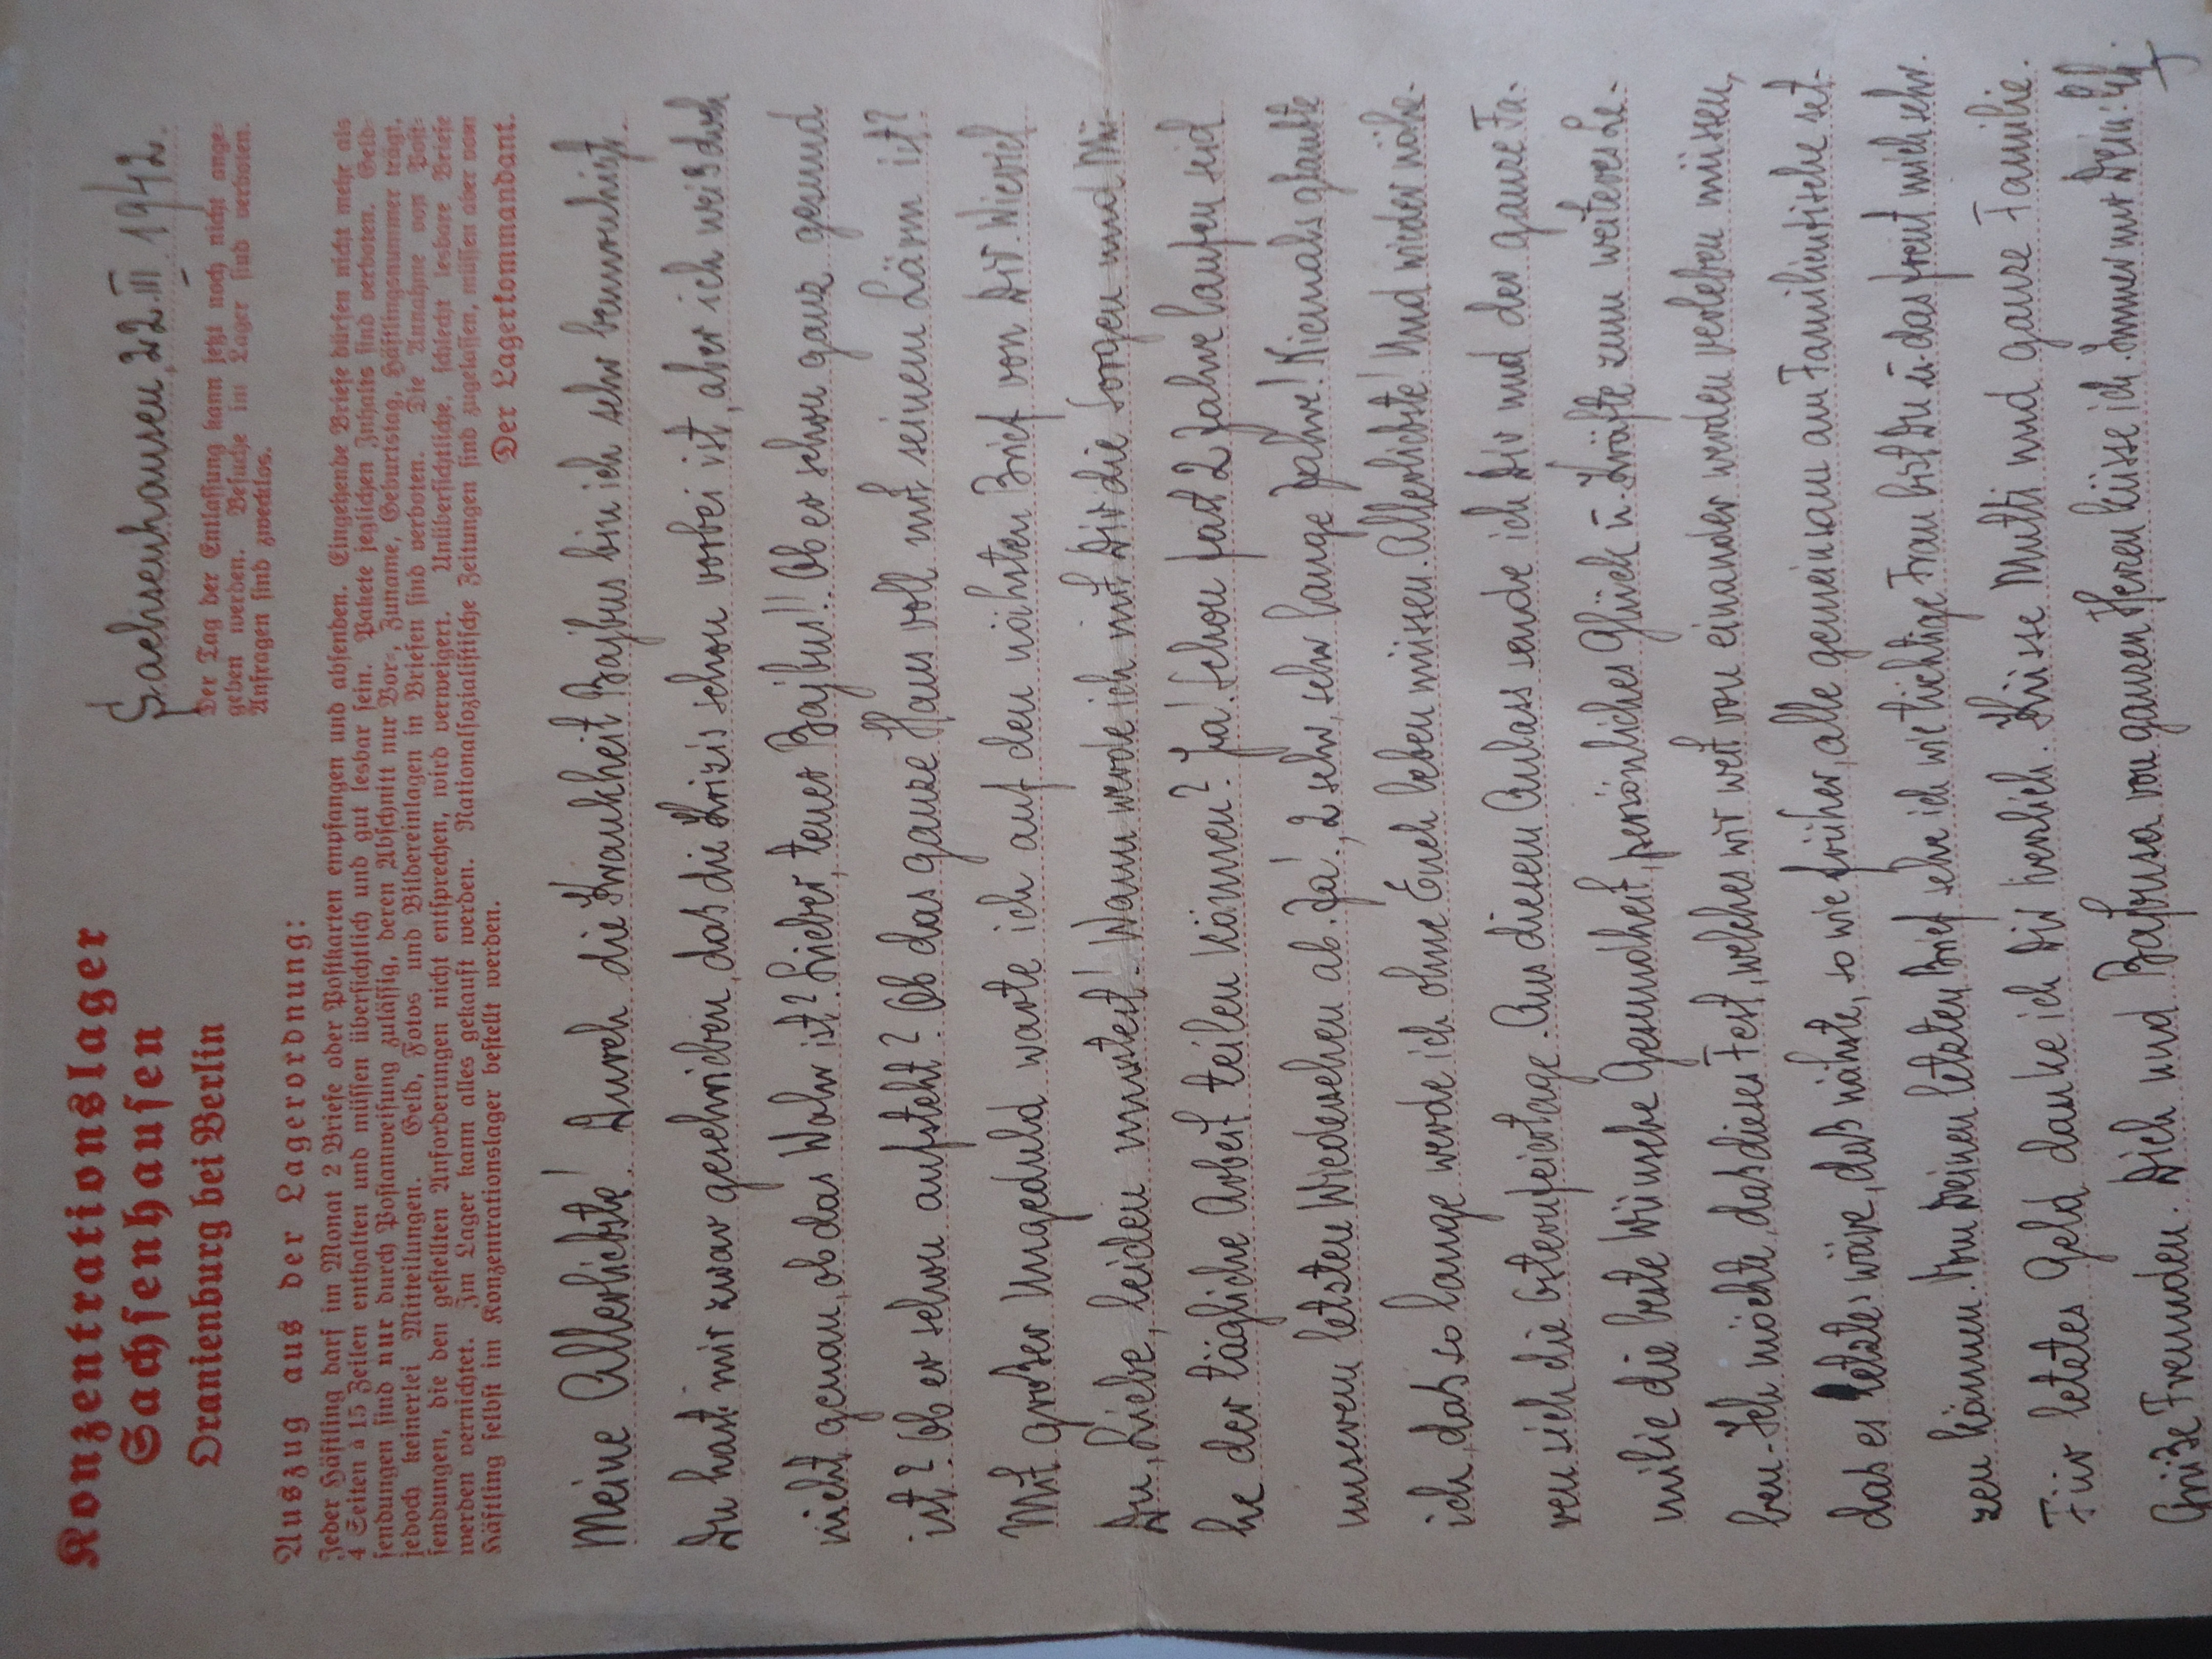 Konzentrationslager
Sachsenhausen
Oranienburg bei Berlin
Sachsenhausen, 22. III 1942.
Der Tag der Entlassung kann jetzt noch nicht ange-
geben werden. Besuche im Lager sind verboten.
Anfragen sind zwecklos.
Auszug aus der Lagerordnung:
Jeder Häftling darf im Monat 2 Briefe oder Postkarten empfangen und absenden. Eingehende Briefe dürfen nicht mehr als
4 Seiten à 15 Zeilen enthalten und müssen übersichtlich und gut lesbar sein. Pakete jeglichen Inhalts sind verboten. Geld-
sendungen sind nur durch Postanweisung zulässig, deren Abschnitt nur Vor-, Zuname, Geburtstag, Häftlingsnummer trägt,
jedoch keinerlei Mitteilungen. Geld, Fotos und Bildereinlagen in Briefen sind verboten. Die Annahme von Post-
sendungen, die den gestellten Anforderungen nicht entsprechen, wird verweigert. Unübersichtliche, schlecht lesbare Briefe
werden vernichtet. Im Lager kann alles gekauft werden. Nationalsozialistische Zeitungen sind zugelassen, müssen aber vom
Häftling selbst im Konzentrationslager bestellt werden.
Der Lagerkommandant.
Meine Allerliebste! Durch die Krankheit Bajbus bin ich sehr beunruhigt.
Du hast mir zwar geschrieben, das die Krizis schon vorbei ist, aber ich weis doch
nicht genau, ob das Wahr ist? Lieber, teuer Bajbus!! Ob er schon ganz gesund
ist? Ob er schon aufsteht? Ob das ganze Haus voll mit seinem Lärm ist?
Mit großer Ungeduld warte ich auf den nächsten Brief von Dir. Wieviel
Du, Liebe, leiden musstest! Wann werde ich mit Dir die Sorgen und Mü-
he der tägliche Arbeit teilen können? Ja! schon fast 2 Jahre laufen seid
unseren letsten Wiedersehen ab. Ja!, 2 sehr, sehr lange Jahre! Niemals glaubte
ich, das so lange werde ich ohne Euch leben müssen. Allerliebste! Und wieder nähe-
ren sich die Osternfeiertage. Aus diesem Anlass sende ich Dir und der ganze Fa-
milie die beste Wünsche Gesundheit, persönliches Glück u. Kräfte zum weiteres Le-
ben. Ich möchte, das dieses Fest, welches wir weit von einander werden verleben müssen,
das es letztes wäre, das nächste, so wie früher, alle gemeinsam am Familientische set-
zen können. Aus Deinen letzten Brief sehe ich wie tüchtige Frau bist Du u. das freut mich sehr.
Für letztes Geld danke ich Dir herzlich. Küsse Mutti und ganze Familie.
Grüße Freunden. Dich und Bajbusa von ganzen Herzen küsse ich. Immer nur Dein